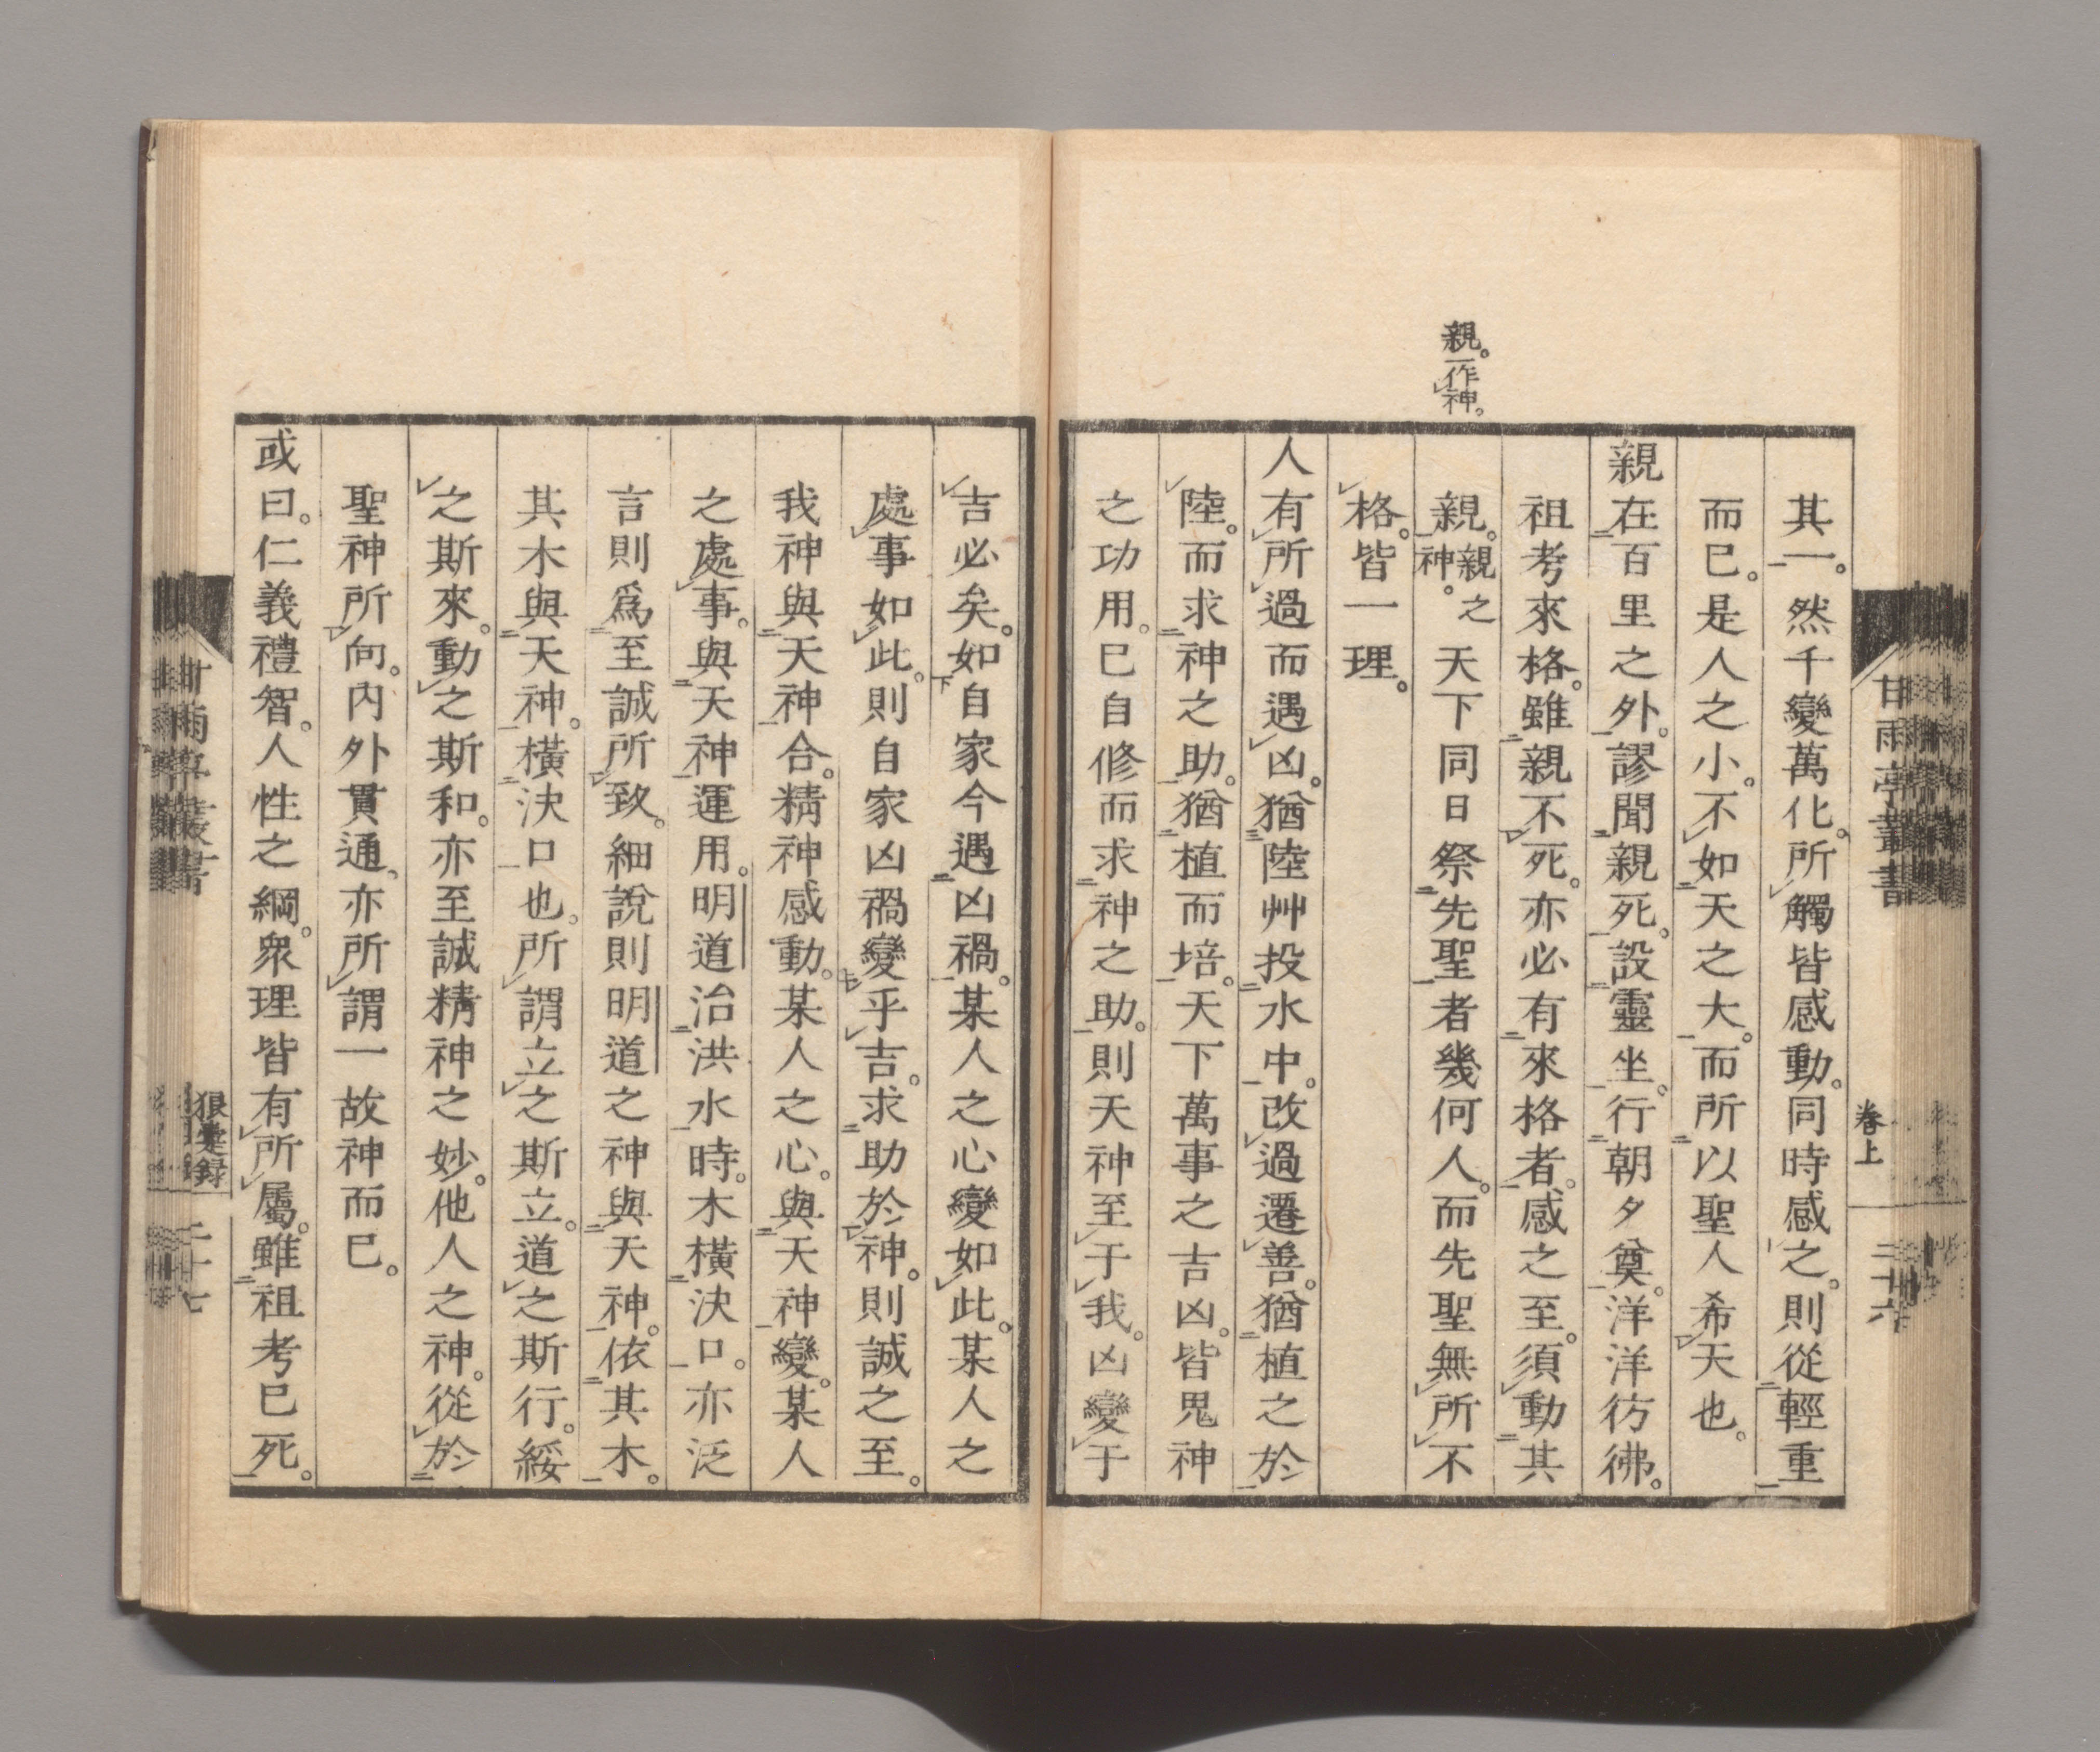 甘雨亭叢書
卷上
二十六
其一。然千變萬化。所觸皆感動。同時感之。則從輕重
而已。是人之小。不如天之大。而所以聖人希天也。
親在百里之外。謬聞親死。設靈坐。行朝夕奠。洋洋彷彿。
祖考來格。雖親不死。亦必有來格者。感之至。須動其
親。一作神。
親。親之神。天下同日祭先聖者幾何人。而先聖無所不
格。皆一理。
人有所過而遇凶。猶陸艸投水中。改過遷善。猶植之於
陸。而求神之助。猶植而培。天下萬事之吉凶。皆鬼神
之功用。已自修而求神之助。則天神至于我。凶變于
吉必矣。如自家今遇凶禍。某人之心變如此。某人之
處事如此。則自家凶禍變乎吉。求助於神。則誠之至。
我神與天神合。精神感動。某人之心。與天神變。某人
之處事。與天神運用。明道治洪水時。木橫決口。亦泛
言則爲至誠所致。細說則明道之神與天神。依其木。
其木與天神。橫決口也。所謂立之斯立。道之斯行。綏
之斯來。動之斯和。亦至誠精神之妙。他人之神。從於
聖神所向。內外貫通。亦所謂一故神而已。
或曰。仁義禮智。人性之綱。衆理皆有所屬。雖祖考已死。
雨亭叢書
狼疐録
二十七